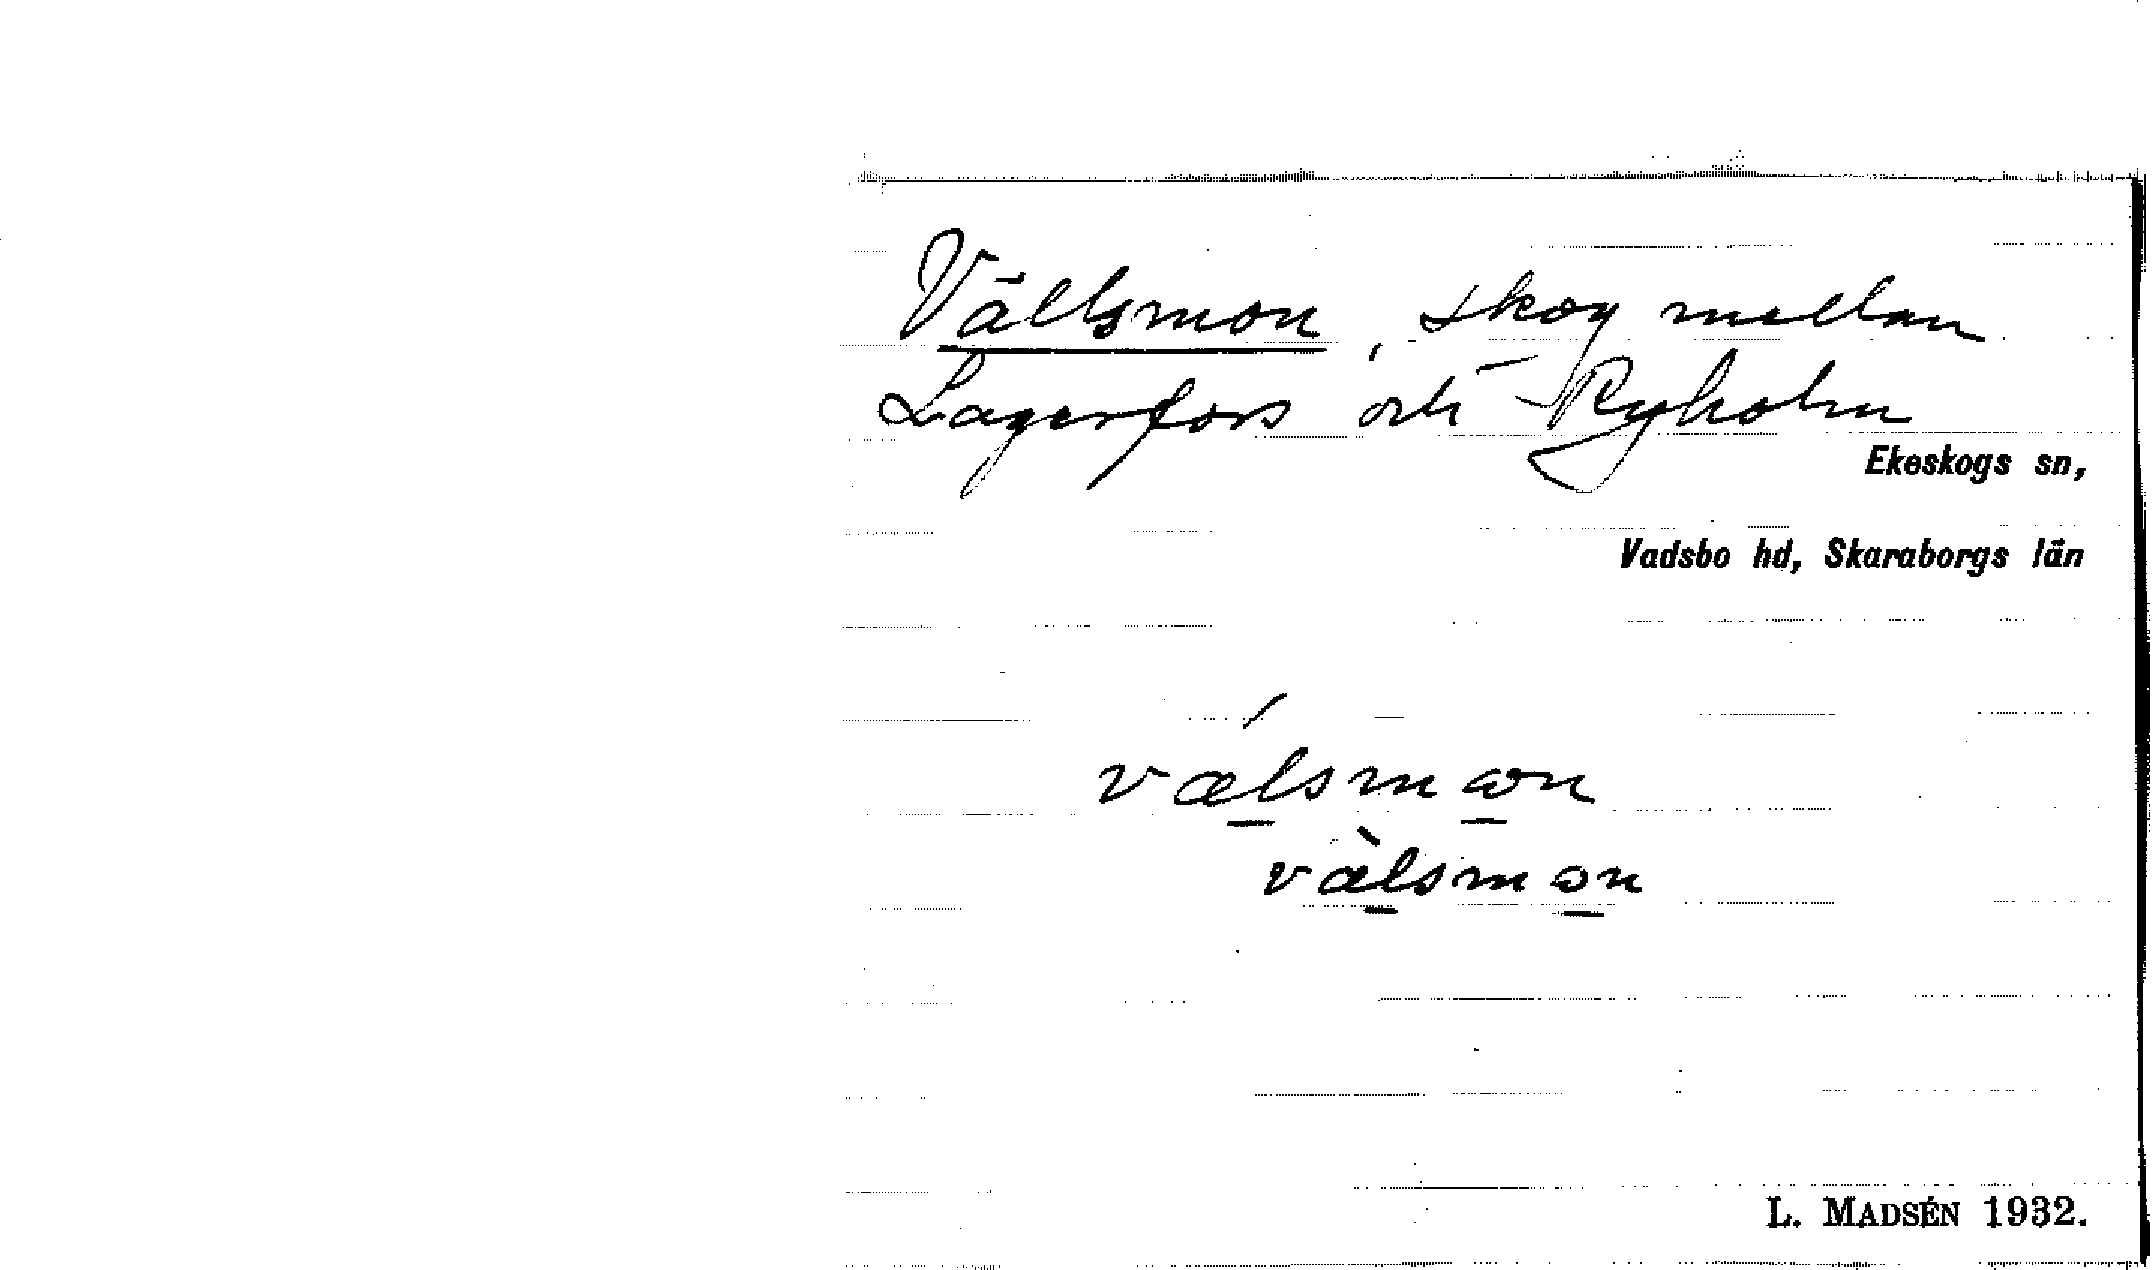 Vällsmon, skog mellan
Lagerfors och Ryholm
Ekeskogs sn,
Vadsbo hd, Skaraborgs län
vælsmωn
vælsmɔn
L. MADSÉN 1932.